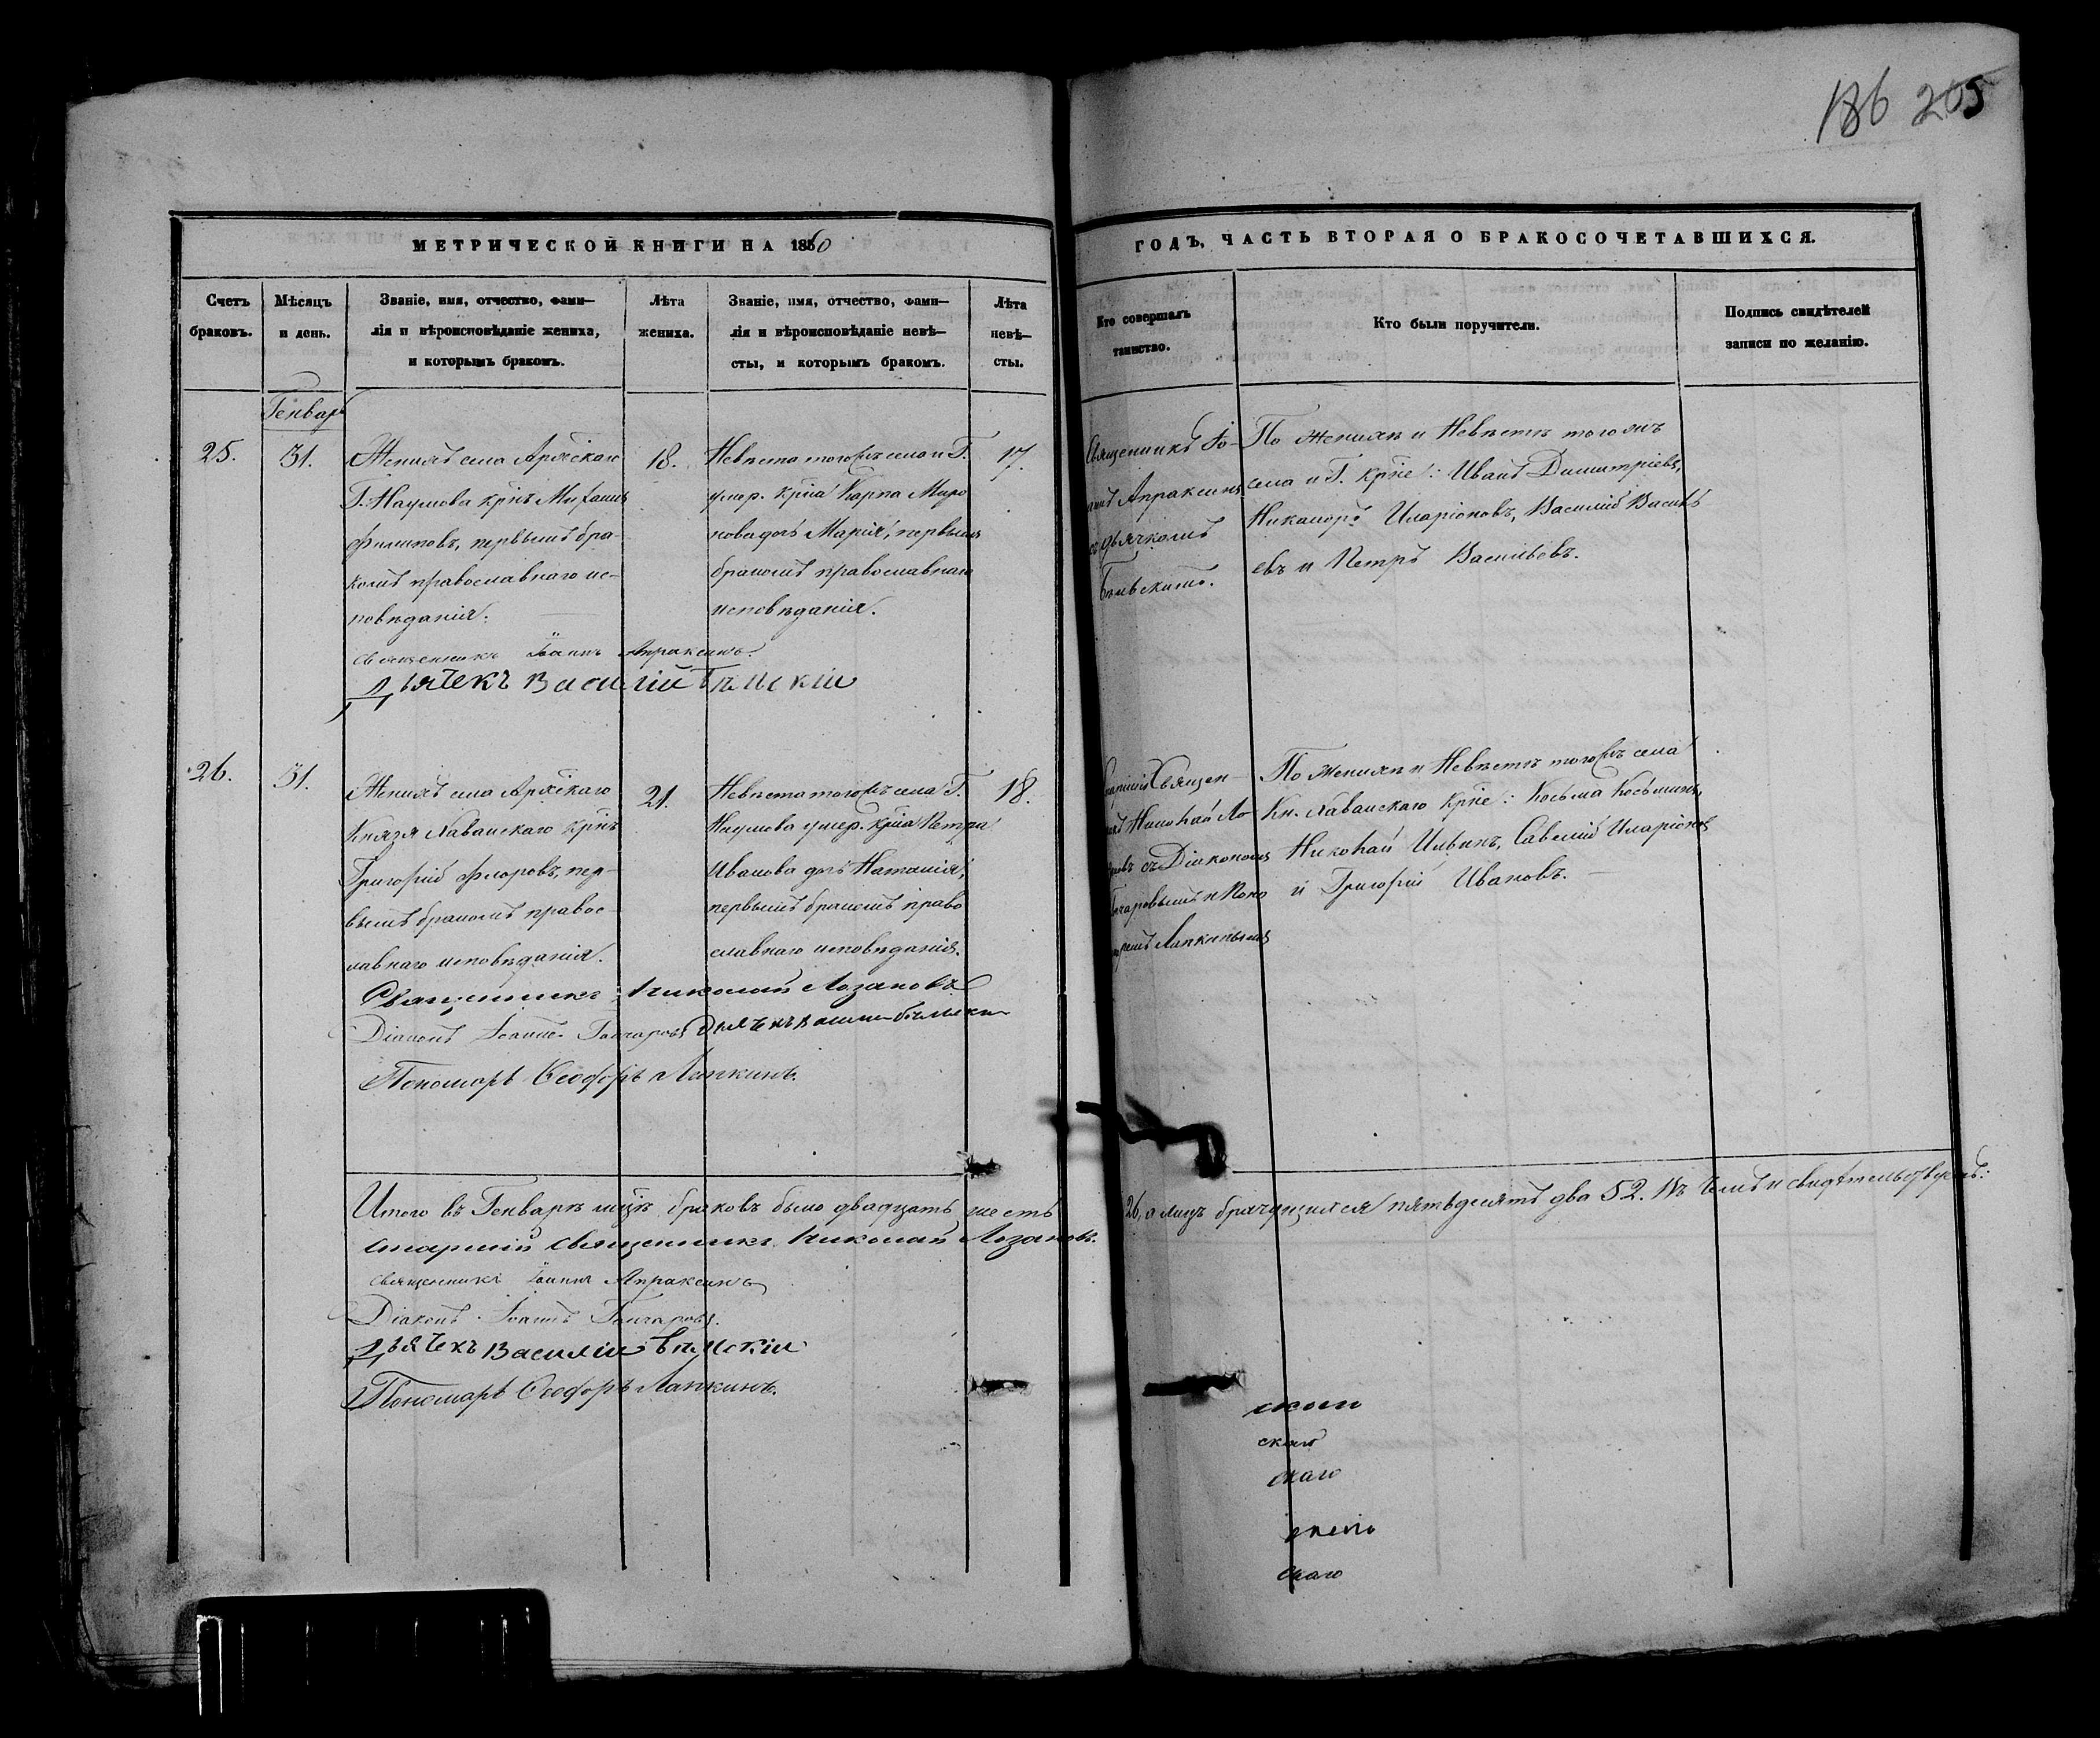 186 205
МЕТРИЧЕСКОЙ КНИГИ НА 1860
ГОДЪ, ЧАСТЬ ВТОРАЯ О БРАКОСОЧЕТАВШИХСЯ.
Счетъ
браковъ.
Мѣсяцъ
и день.
Званіе, имя, отчество, фами–
лія и вѣроисповѣданіе жениха,
и которымъ бракомъ.
Лѣта
жениха.
Званіе, имя, отчество, фами–
лія и вѣроисповѣданіе невѣ–
сты, и которымъ бракомъ.
Лѣта
невѣ–
сты.
Кто совершалъ
таинство.
Кто были поручители.
Подпись свидѣтелей
записи по желанію.
Генварь
25.
31.
Женихъ села
Г. Наумова крнъ
Филиповъ, первымъ бра-
комъ православнаго ис-
повѣданія.
18.
Невѣста тогожъ села и Г.
умер. крна Карпа Миро
нова дочь Марія, первымъ
бракомъ православнаго
исповѣданія.
17.
Священникъ Іо-
аннъ Апраксинъ
съ дьячкомъ
Бѣльскимъ.
По Женихѣ и Невѣстѣ тогожъ
села и Г. крне: Иванъ Димитріевъ,
Никаноръ Иларіоновъ, Василій Василь
евъ и Петръ Васильевъ.
Священникъ Іоаннъ Апраксинъ.
Дьячекъ Василій Бѣльскій
26.
31.
Женихъ села
Князя крнъ
Григорій Флоровъ, пер-
вымъ бракомъ правос-
лавнаго исповѣданія.
21.
Невѣста тогожъ села Г.
Наумова умер. крна Петра
Иванова дочь Наталія,
первымъ бракомъ право
славнаго исповѣданія.
18.
Старшій Священ-
никъ Николай Ло
зановъ съ Діакономъ
Гончаровымъ и Поно
маремъ Лапкинымъ
По Женихѣ и Невѣстѣ тогожъ села
Кн. крне: Косьма Косьминъ,
Николай Ильинъ, Савелій Иларіоновъ
и Григорій Ивановъ.
Священникъ Николай Лозановъ
Діаконъ Іоаннъ Гончаровъ Дьячекъ Василій Бѣльскій
Пономарь Ѳеодоръ Лапкинъ.
Итого въ Генварѣ мцѣ браковъ было двадцать шесть
26, а лицъ брачущихся пятьдесятъ два 52. Въ чемъ и свидѣтельствуемъ:
Старшій Священникъ Николай Лозановъ.
Священникъ Іоаннъ Апраксинъ
Діаконъ Іоаннъ Гончаровъ.
Дьячекъ Василій Бѣльскій
Пономарь Ѳеодоръ Лапкинъ.
скаго
скаго
скаго
скаго